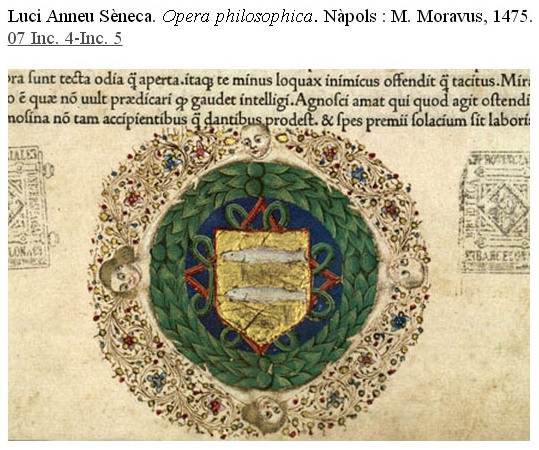 Luci Anneu Sèneca. Opera philosophica. Nàpols : M. Moravus, 1475.
07 Inc. 4-Inc. 5
ora sunt tecta odia q̃ aperta.itaq; te minus loquax inimicus offendit q̃ tacitus.Mira
o ē quæ nõ uult prædicari ꝙ gaudet intelligi.Agnosci amat qui quod agit ostendi
mosina nõ tam accipientibus q̃ dantibus prodest. & spes premii solacium sit laboris
BARCELON